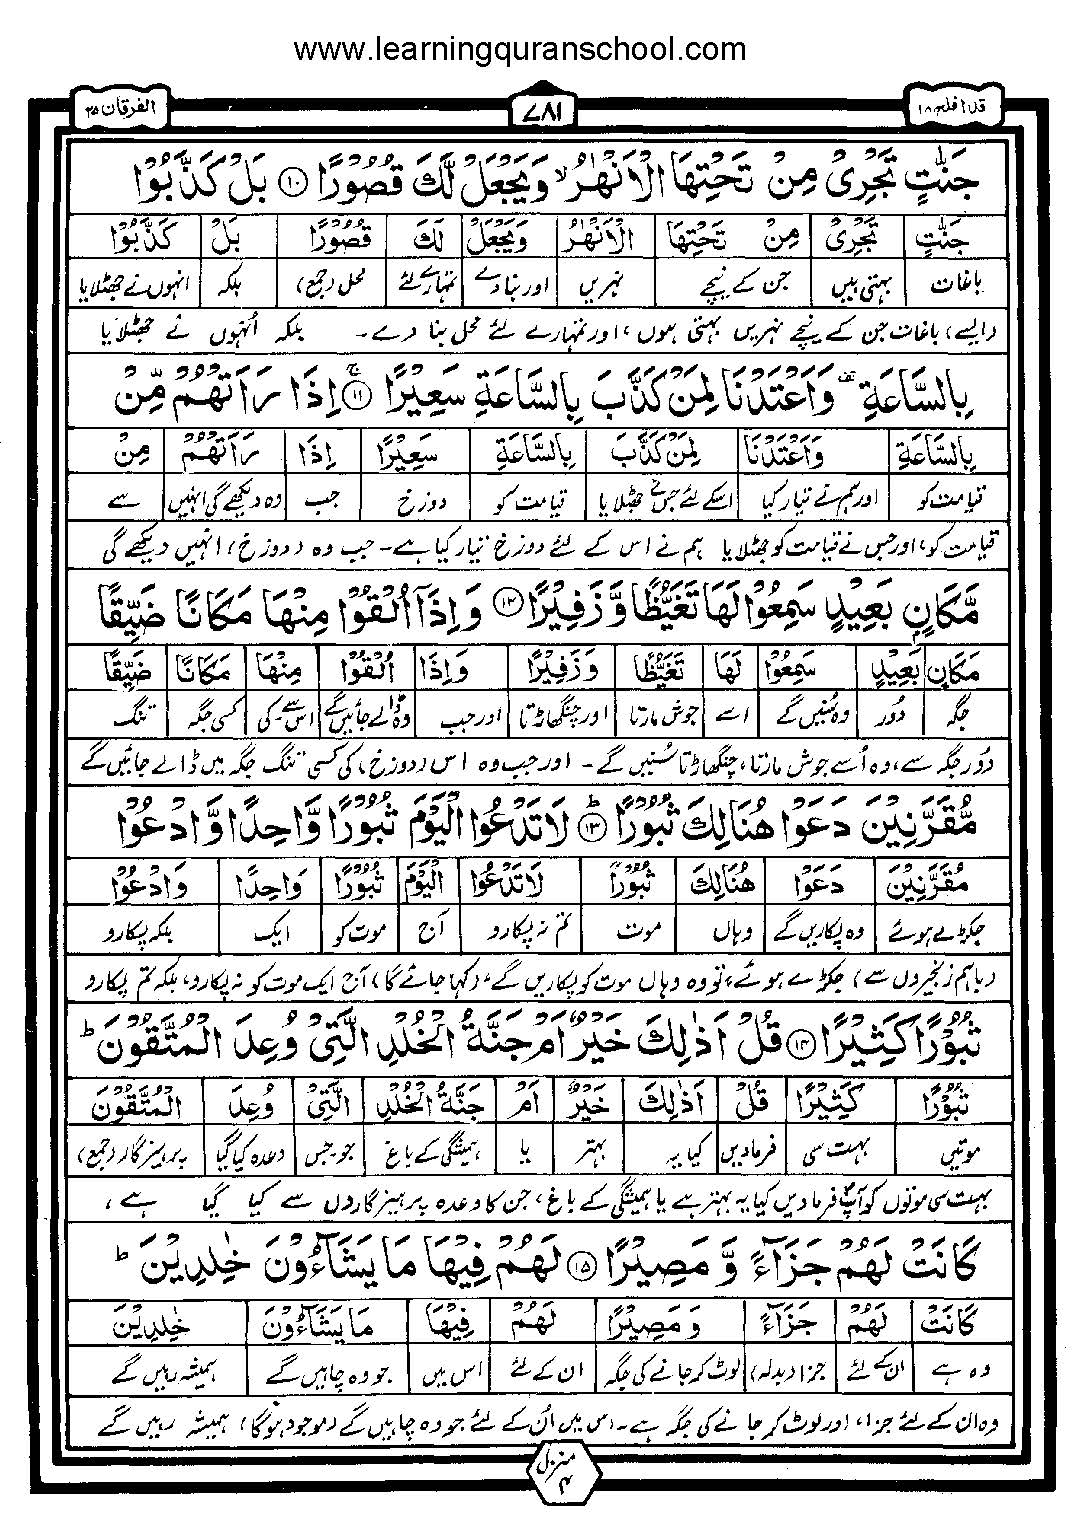 www.learningquranschool.com
قد افلح ۱۸
۷۸۱
الفرقان ۲۵
جَنّٰتٍ تَجْرِيْ مِنْ تَحْتِهَا الْاَنْهٰرُ ۙ وَيَجْعَلْ لَّكَ قُصُوْرًا ۝۱۰ بَلْ كَذَّبُوْا
جَنّٰتٍ تَجْرِيْ مِنْ تَحْتِهَا الْاَنْهٰرُ وَيَجْعَلْ لَكَ قُصُوْرًا بَلْ كَذَّبُوْا
باغات بہتی ہیں جن کے نیچے نہریں اور بنا دے تمہارے لئے محل (جمع) بلکہ انہوں نے جھٹلایا
(ایسے) باغات جن کے نیچے نہریں بہتی ہوں، اور تمہارے لئے محل بنا دے۔ بلکہ اُنہوں نے جھٹلایا
بِالسَّاعَةِ وَاَعْتَدْنَا لِمَنْ كَذَّبَ بِالسَّاعَةِ سَعِيْرًا ۝۱۱ۚ اِذَا رَاَتْهُمْ مِّنْ
بِالسَّاعَةِ وَاَعْتَدْنَا لِمَنْ كَذَّبَ بِالسَّاعَةِ سَعِيْرًا اِذَا رَاَتْهُمْ مِنْ
قیامت کو اور ہم نے تیار کیا اسکے لئے جس نے جھٹلایا قیامت کو دوزخ جب وہ دیکھے گی انہیں سے
قیامت کو، اور جس نے قیامت کو جھٹلایا ہم نے اس کے لئے دوزخ تیار کیا ہے۔ جب وہ (دوزخ) انہیں دیکھے گی
مَّكَانٍۭ بَعِيْدٍ سَمِعُوْا لَهَا تَغَيُّظًا وَّ زَفِيْرًا ۝۱۲ وَاِذَآ اُلْقُوْا مِنْهَا مَكَانًا ضَيِّقًا
مَكَانٍ بَعِيْدٍ سَمِعُوْا لَهَا تَغَيُّظًا وَ زَفِيْرًا وَاِذَا اُلْقُوْا مِنْهَا مَكَانًا ضَيِّقًا
جگہ دُور وہ سُنیں گے اسے جوش مارتا اور چنگھاڑتا اور جب وہ ڈالے جائیں گے اس سے۔کی کسی جگہ تنگ
دُور جگہ سے، وہ اُسے جوش مارتا، چنگھاڑتا سُنیں گے۔ اور جب وہ اس (دوزخ) کی کسی تنگ جگہ میں ڈالے جائیں گے
مُّقَرَّنِيْنَ دَعَوْا هُنَالِكَ ثُبُوْرًا ۝۱۳ؕ لَا تَدْعُوا الْيَوْمَ ثُبُوْرًا وَّاحِدًا وَّ ادْعُوْا
مُقَرَّنِيْنَ دَعَوْا هُنَالِكَ ثُبُوْرًا لَا تَدْعُوا الْيَوْمَ ثُبُوْرًا وَاحِدًا وَادْعُوْا
جکڑے ہوئے وہ پکاریں گے وہاں موت تم نہ پکارو آج موت کو ایک بلکہ پکارو
(باہم زنجیروں سے) جکڑے ہوئے، تو وہ وہاں موت کو پکاریں گے، (کہا جائے گا) آج ایک موت کو نہ پکارو، بلکہ تم پکارو
ثُبُوْرًا كَثِيْرًا ۝۱۴ قُلْ اَذٰلِكَ خَيْرٌ اَمْ جَنَّةُ الْخُلْدِ الَّتِيْ وُعِدَ الْمُتَّقُوْنَ ؕ
ثُبُوْرًا كَثِيْرًا قُلْ اَذٰلِكَ خَيْرٌ اَمْ جَنَّةُ الْخُلْدِ الَّتِيْ وُعِدَ الْمُتَّقُوْنَ
موتیں بہت سی فرمادیں کیا یہ بہتر یا ہمیشگی کے باغ جو۔جس وعدہ کیا گیا پرہیزگار (جمع)
بہت سی موتوں کو آپ فرمادیں کیا یہ بہتر ہے یا ہمیشگی کے باغ، جن کا وعدہ پرہیزگاروں سے کیا گیا ہے،
كَانَتْ لَهُمْ جَزَآءً وَّ مَصِيْرًا ۝۱۵ لَهُمْ فِيْهَا مَا يَشَآءُوْنَ خٰلِدِيْنَ ؕ
كَانَتْ لَهُمْ جَزَآءً وَ مَصِيْرًا لَهُمْ فِيْهَا مَا يَشَآءُوْنَ خٰلِدِيْنَ
وہ ہے ان کے لئے جزا (بدلہ) لوٹ کر جانے کی جگہ ان کے لئے اس میں جو وہ چاہیں گے ہمیشہ رہیں گے
وہ ان کے لئے جزا، اور لوٹ کر جانے کی جگہ ہے۔ اس میں اُن کے لئے جو وہ چاہیں گے (موجود ہوگا) ہمیشہ رہیں گے
منزل
۴